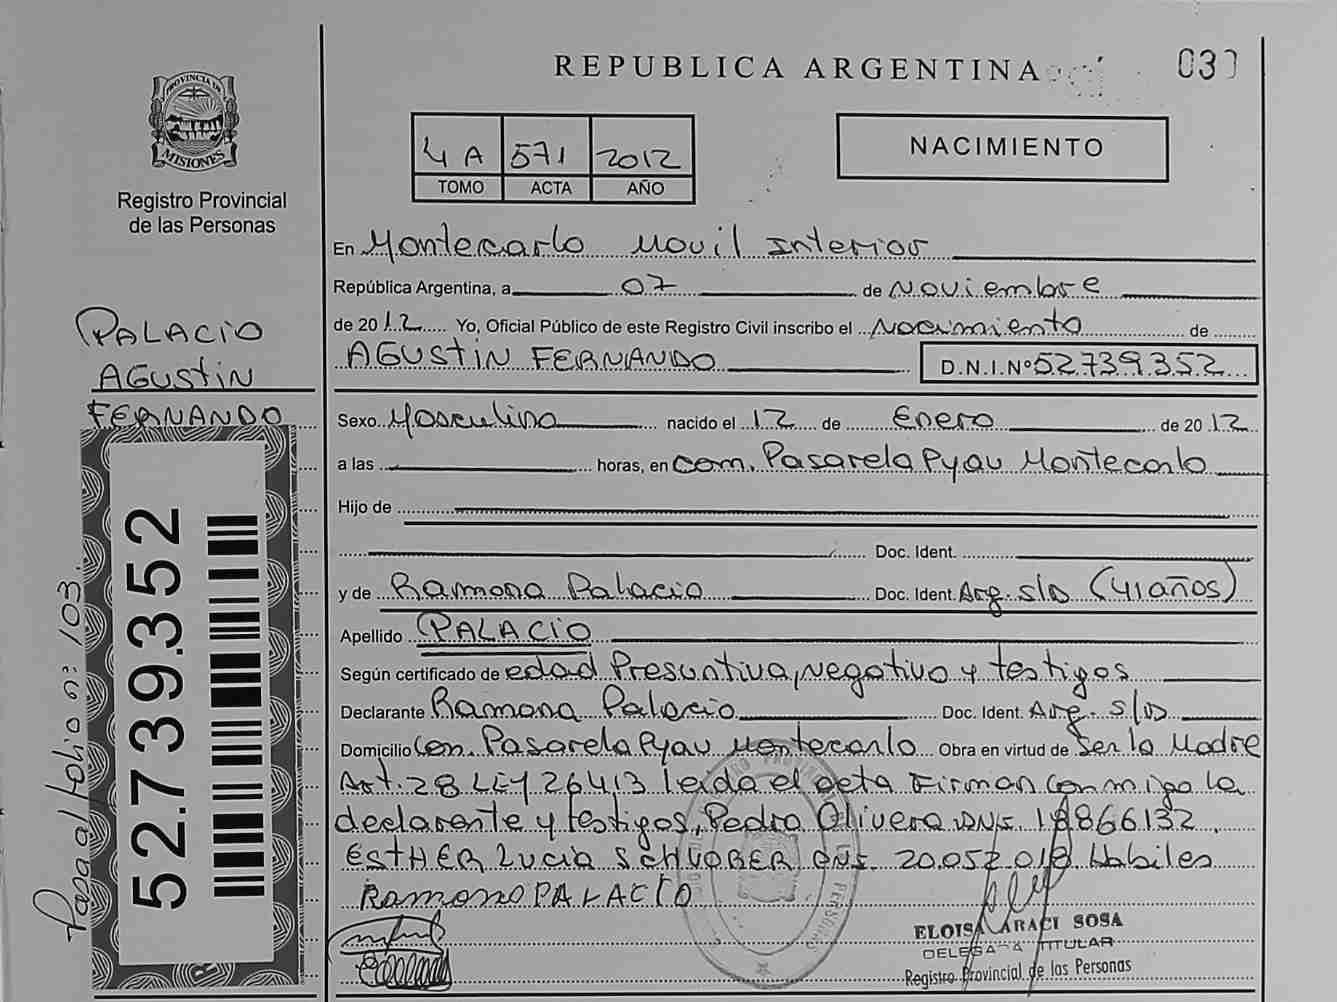 REPUBLICA ARGENTINA
PROVINCIA DE
MISIONES
Registro Provincial
de las Personas
4 A 571 2012
TOMO ACTA AÑO
NACIMIENTO
En Montecarlo Movil Interior
República Argentina, a 07 de Noviembre
de 2012 Yo, Oficial Público de este Registro Civil inscribo el Nacimiento de
AGUSTIN FERNANDO D.N.I.Nº 52.739.352
PALACIO
AGUSTIN
FERNANDO
Sexo Masculino nacido el 12 de Enero de 2012
a las horas, en Com. Pasarela Pyau Montecarlo
Hijo de
Doc. Ident.
y de Ramona Palacio Doc. Ident. Arg. S/D (41 años)
Apellido PALACIO
Según certificado de edad Presuntiva, negativo y testigos
Declarante Ramona Palacio Doc. Ident. Arg. S/D
Domicilio Com. Pasarela Pyau Montecarlo Obra en virtud de Ser la Madre
Art. 28 LEY 26413 leida el acta Firman conmigo la
declarante y testigos, Pedro Olivera DNI. 18866132.
ESTHER Lucia SCHVORER DNI. 20.052.018 Habiles
Ramona PALACIO
ELOISA ARACI SOSA
DELEGADA TITULAR
Registro Provincial de las Personas
52.739.352
Pasa al folio nº 103.